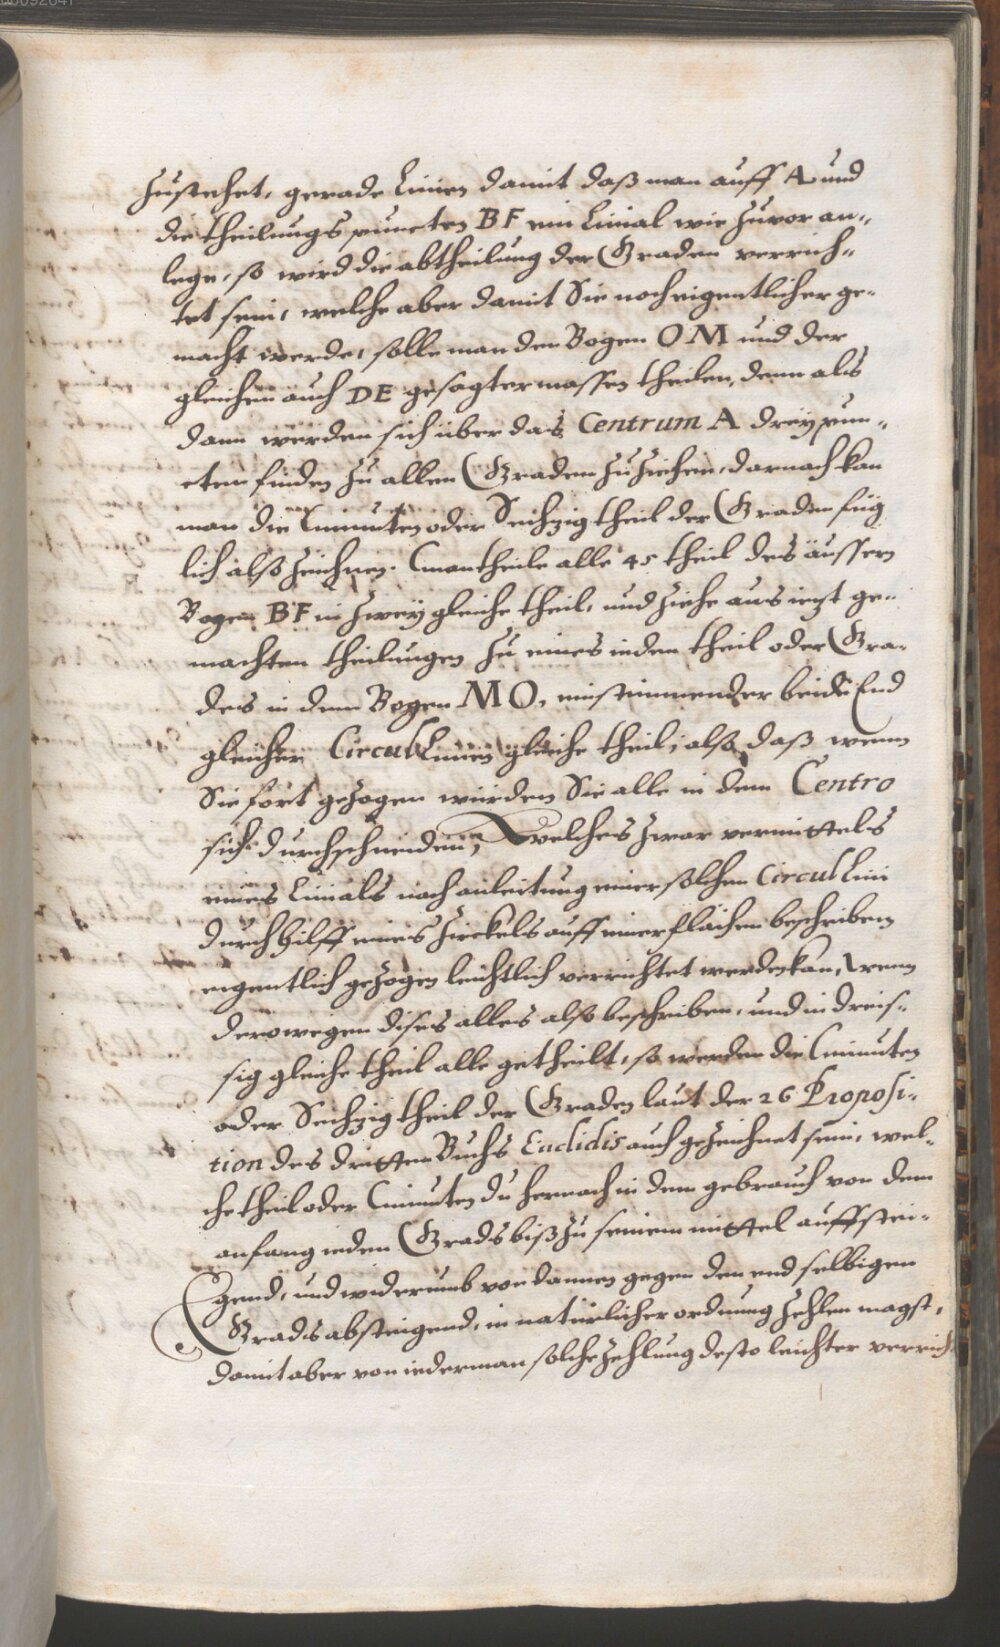 zustehet, gerade Linien damit daß man auff A und
die theilungs puncten BF ein Linial wie zuvor an-
lege, so wird die abtheilung der Graden verrich-
tet sein, welche aber damit Sie noch eigentlicher ge-
macht werde, solle man den Bogen OM und der
gleichen auch DE gesagter massen theilen, denn als
dann werden sich über das Centrum A drey pun-
cten finden zu allen Graden zu ziehen, darnach kan
man die minuten oder Sechzig theil der Graden füg
lich also zeichnen. man theile alle 45 theil des äussern
Bogen BF in zwey gleiche theil, und ziehe aus iezt ge-
machten theilungen zu eines ieden theil oder Gra-
des in dem Bogen MO, einstimmender beide End
gleicher Circul Linien gleiche theil, also daß wenn
Sie fort gezogen würden Sie alle in dem Centro
sich durchschneiden, welches zwar vermittels
eines Linials nach anleitung einer solchen Circul Lini
durch hilff eines Zirckels auff einer flächen beschriben
eigentlich gezogen leichtlich verrichtet werden kan, wenn
derowegen dises alles also beschriben, und in dreis-
sig gleiche theil alle getheilt, so werden die minuten
oder Sechzig theil der Graden laut der 26 Proposi-
tion des dritten Buchs Euclidis auch gezeichnet sein, wel-
che theil oder minuten du hernach in dem gebrauch von dem
anfang ieden Grads biß zu seinem mittel auffstei-
gend, und widerumb von dannen gegen den end selbigen
Grads absteigend, in natürlicher ordnung zehlen magst,
damit aber von iederman solche zehlung desto leichter verrich